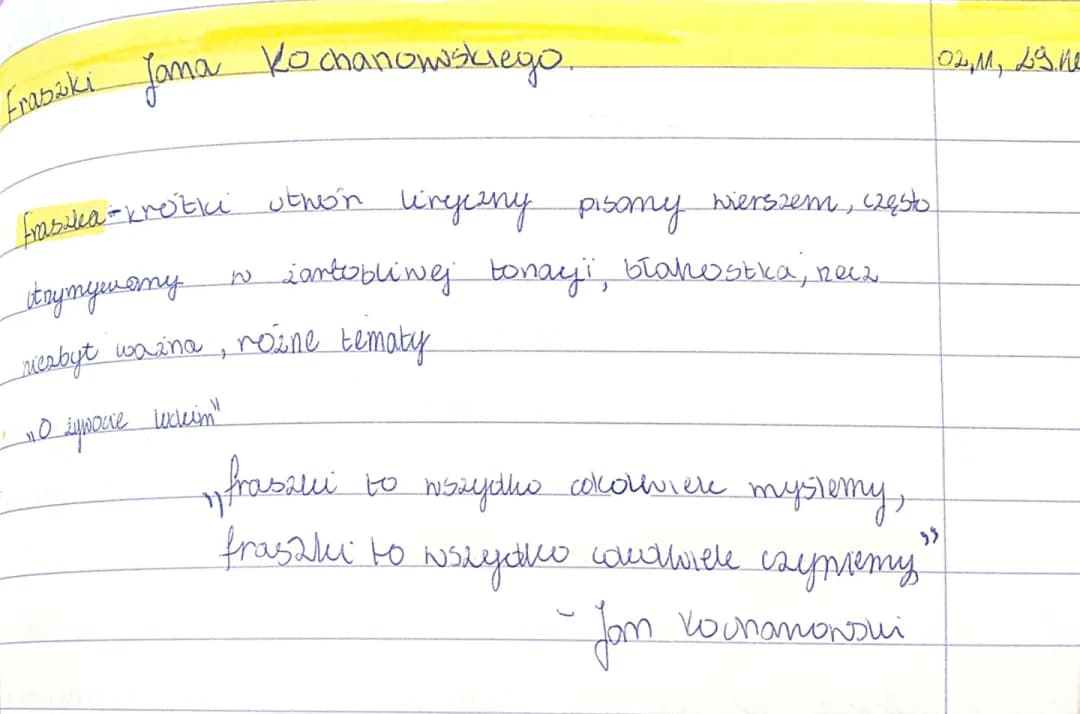 Fraszki Jana Kochanowskiego.
02,11,
fraszka - krótki utwór liryczny pisany wierszem, często
utrzymywany w żartobliwej tonacji, błahostka, rzecz
niezbyt ważna, różne tematy
„O żywocie ludzkim"
„fraszki to wszydko cokolwiek myślemy,
fraszki to wszydko cokolwiek czyniemy"
- Jan Kochanowski